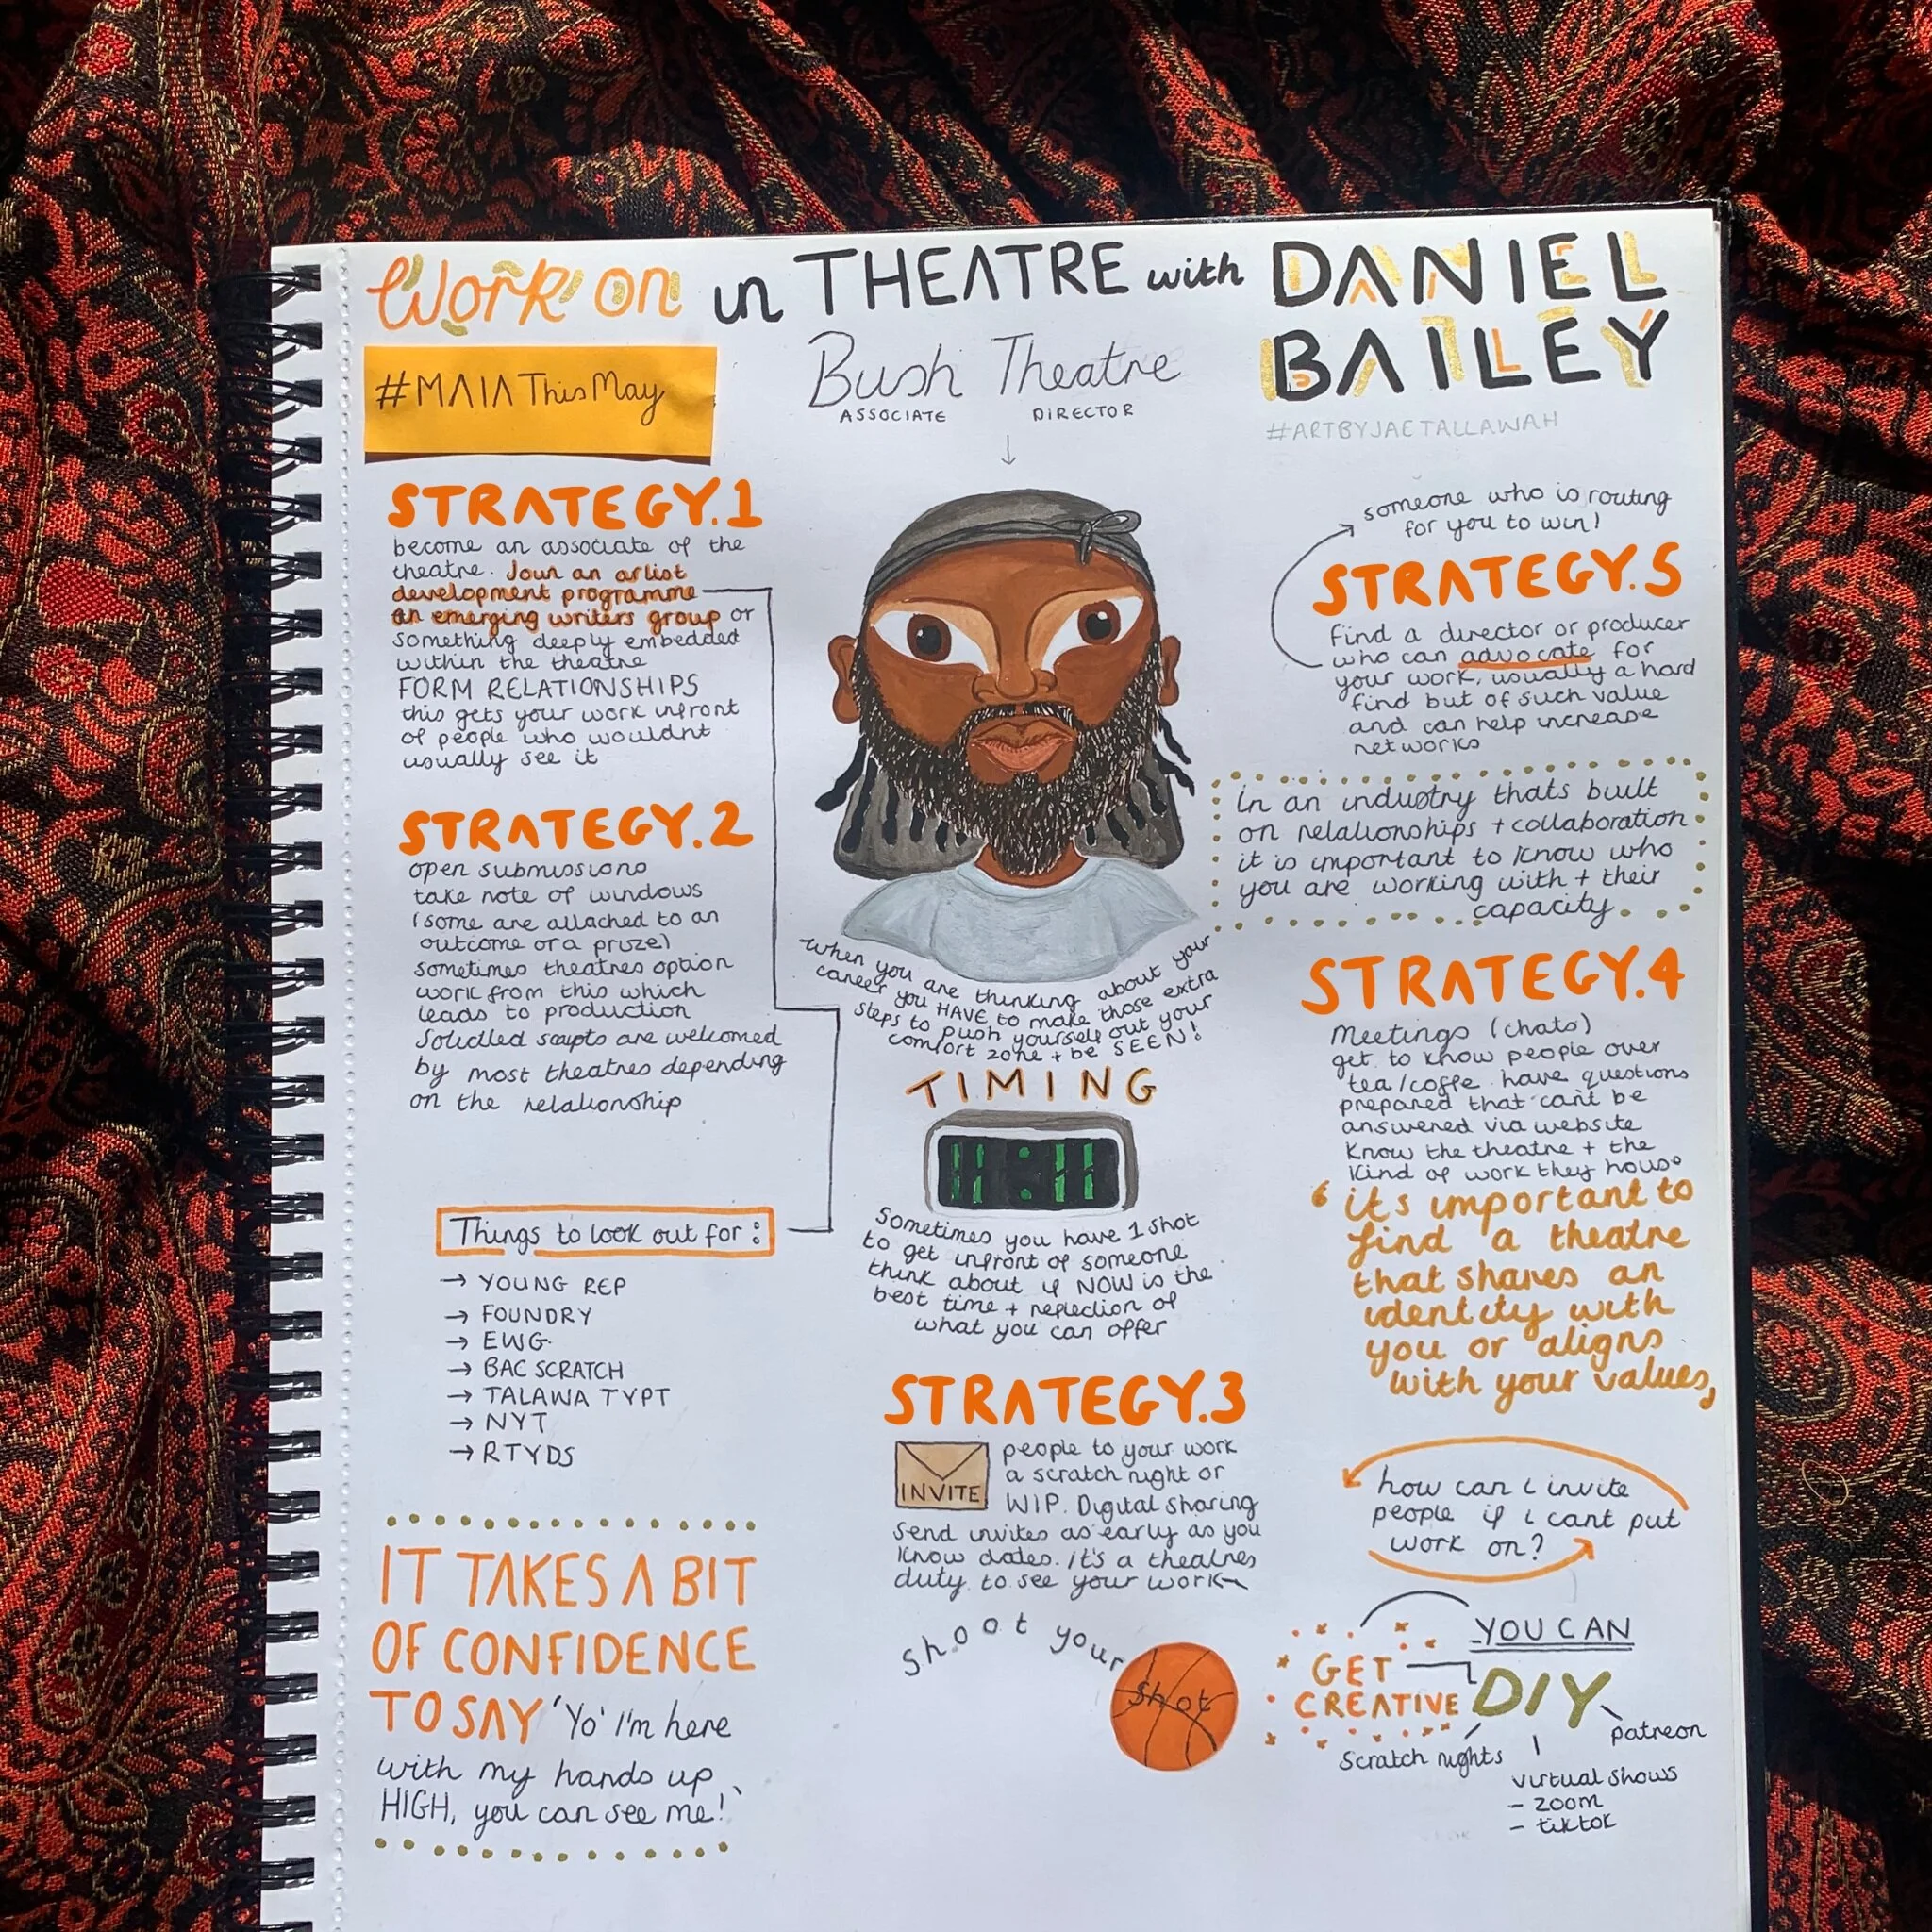 Work on in THEATRE with DANIEL
BAILEY
#MAIA This May
Bush Theatre
ASSOCIATE DIRECTOR
#ARTBYJAETALLAWAH
STRATEGY.1
become an associate of the
theatre. Join an artist
development programme
an emerging writers group or
something deeply embedded
within the theatre
FORM RELATIONSHIPS
this gets your work infront
of people who wouldnt
usually see it
STRATEGY.2
open submissions
take note of windows
(some are attached to an
outcome or a prize)
sometimes theatres option
work from this which
leads to production
Solicited scripts are welcomed
by most theatres depending
on the relationship
Things to look out for:
→ YOUNG REP
→ FOUNDRY
→ EWG
→ BAC SCRATCH
→ TALAWA TYPT
→ NYT
→ RTYDS
IT TAKES A BIT
OF CONFIDENCE
TO SAY 'Yo' I'm here
with my hands up
HIGH, you can see me!'
when you are thinking about your
career you HAVE to make those extra
steps to push yourself out your
comfort zone + be SEEN!
TIMING
11:11
Sometimes you have 1 shot
to get infront of someone
think about if NOW is the
best time + reflection of
what you can offer
STRATEGY.3
INVITE
people to your work
a scratch night or
WIP. Digital sharing
send invites as early as you
know dates. it's a theatres
duty to see your work
Shoot your
shot
someone who is routing
for you to win!
STRATEGY.5
find a director or producer
who can advocate for
your work, usually a hard
find but of such value
and can help increase
networks
In an industry thats built
on relationships + collaboration
it is important to know who
you are working with + their
capacity.
STRATEGY.4
Meetings (chats)
get to know people over
tea/coffe. have questions
prepared that can't be
answered via website
Know the theatre + the
kind of work they house
'its important to
find a theatre
that shares an
identity with
you or aligns
with your values,
how can i invite
people if i cant put
work on?
YOU CAN
GET
CREATIVE
DIY
patreon
Scratch nights
virtual shows
- zoom
- tiktok